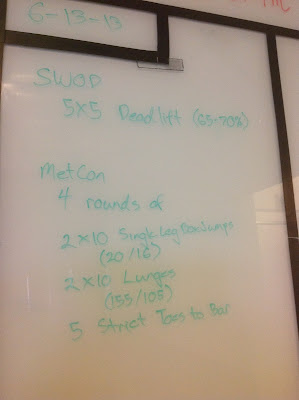 6-13-13
SWOD
5x5 Deadlift (65-70%)
MetCon
4 rounds of
2x10 Single Leg Box Jumps
(20/16)
2x10 Lunges
(155/105)
5 Strict Toes to Bar